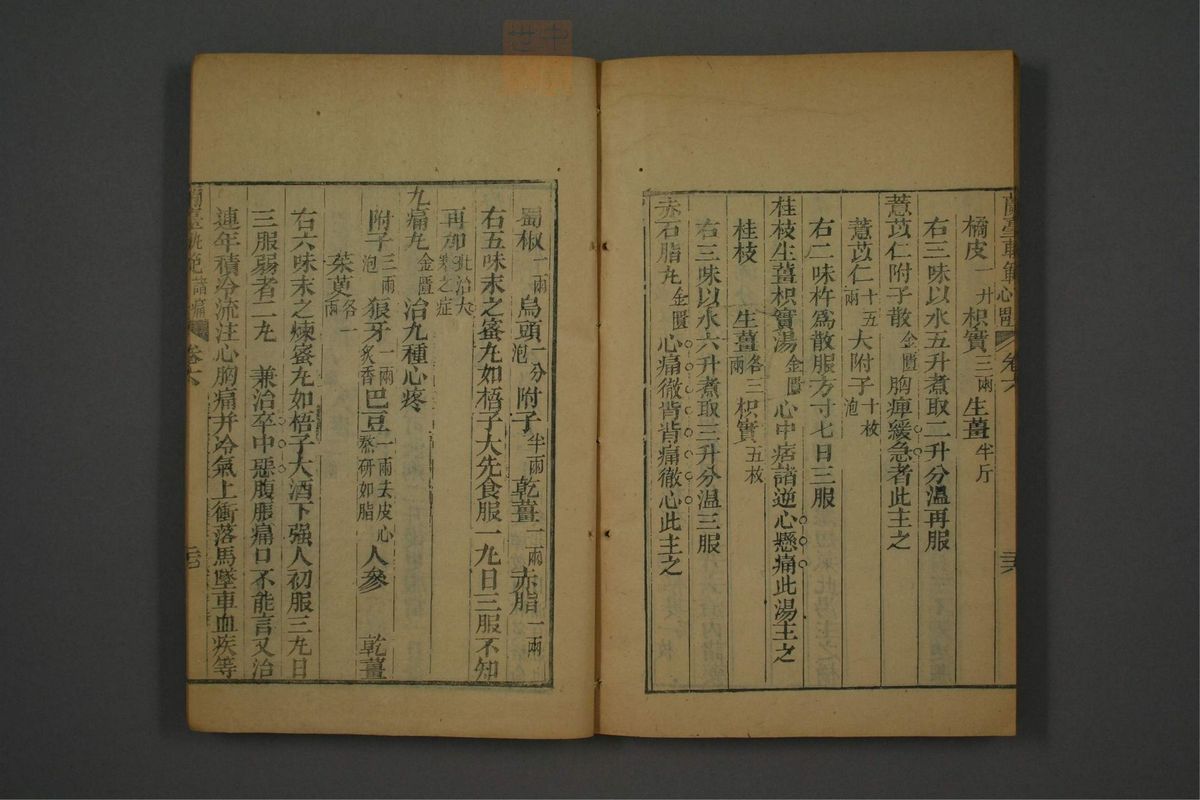 橘皮一升 枳實三兩 生薑半斤
右三味以水五升煮取二升分溫再服
薏苡仁附子散金匱 胸痺緩急者此主之
薏苡仁十五兩 大附子十枚泡
右二味杵爲散服方寸七日三服
桂枝生薑枳實湯金匱 心中痞諸逆心懸痛此湯主之
桂枝 生薑各三兩 枳實五枚
右三味以水六升煮取三升分溫三服
赤石脂丸金匱 心痛徹背背痛徹心此主之
卷六
蜀椒一兩 烏頭一分泡 附子半兩 乾薑一兩 赤脂一兩
右五味末之蜜丸如梧子大先食服一丸日三服不知
再加此治大寒之症
九痛丸金匱 治九種心疼
附子三兩泡 狼牙一兩炙香 巴豆一兩去皮心熬研如脂 人參 乾薑
茱萸各一兩
右六味末之煉蜜丸如梧子大酒下强人初服三丸日
三服弱者二丸 兼治卒中惡腹脹痛口不能言又治
連年積冷流注心胸痛并冷氣上衝落馬墜車血疾等
卷六